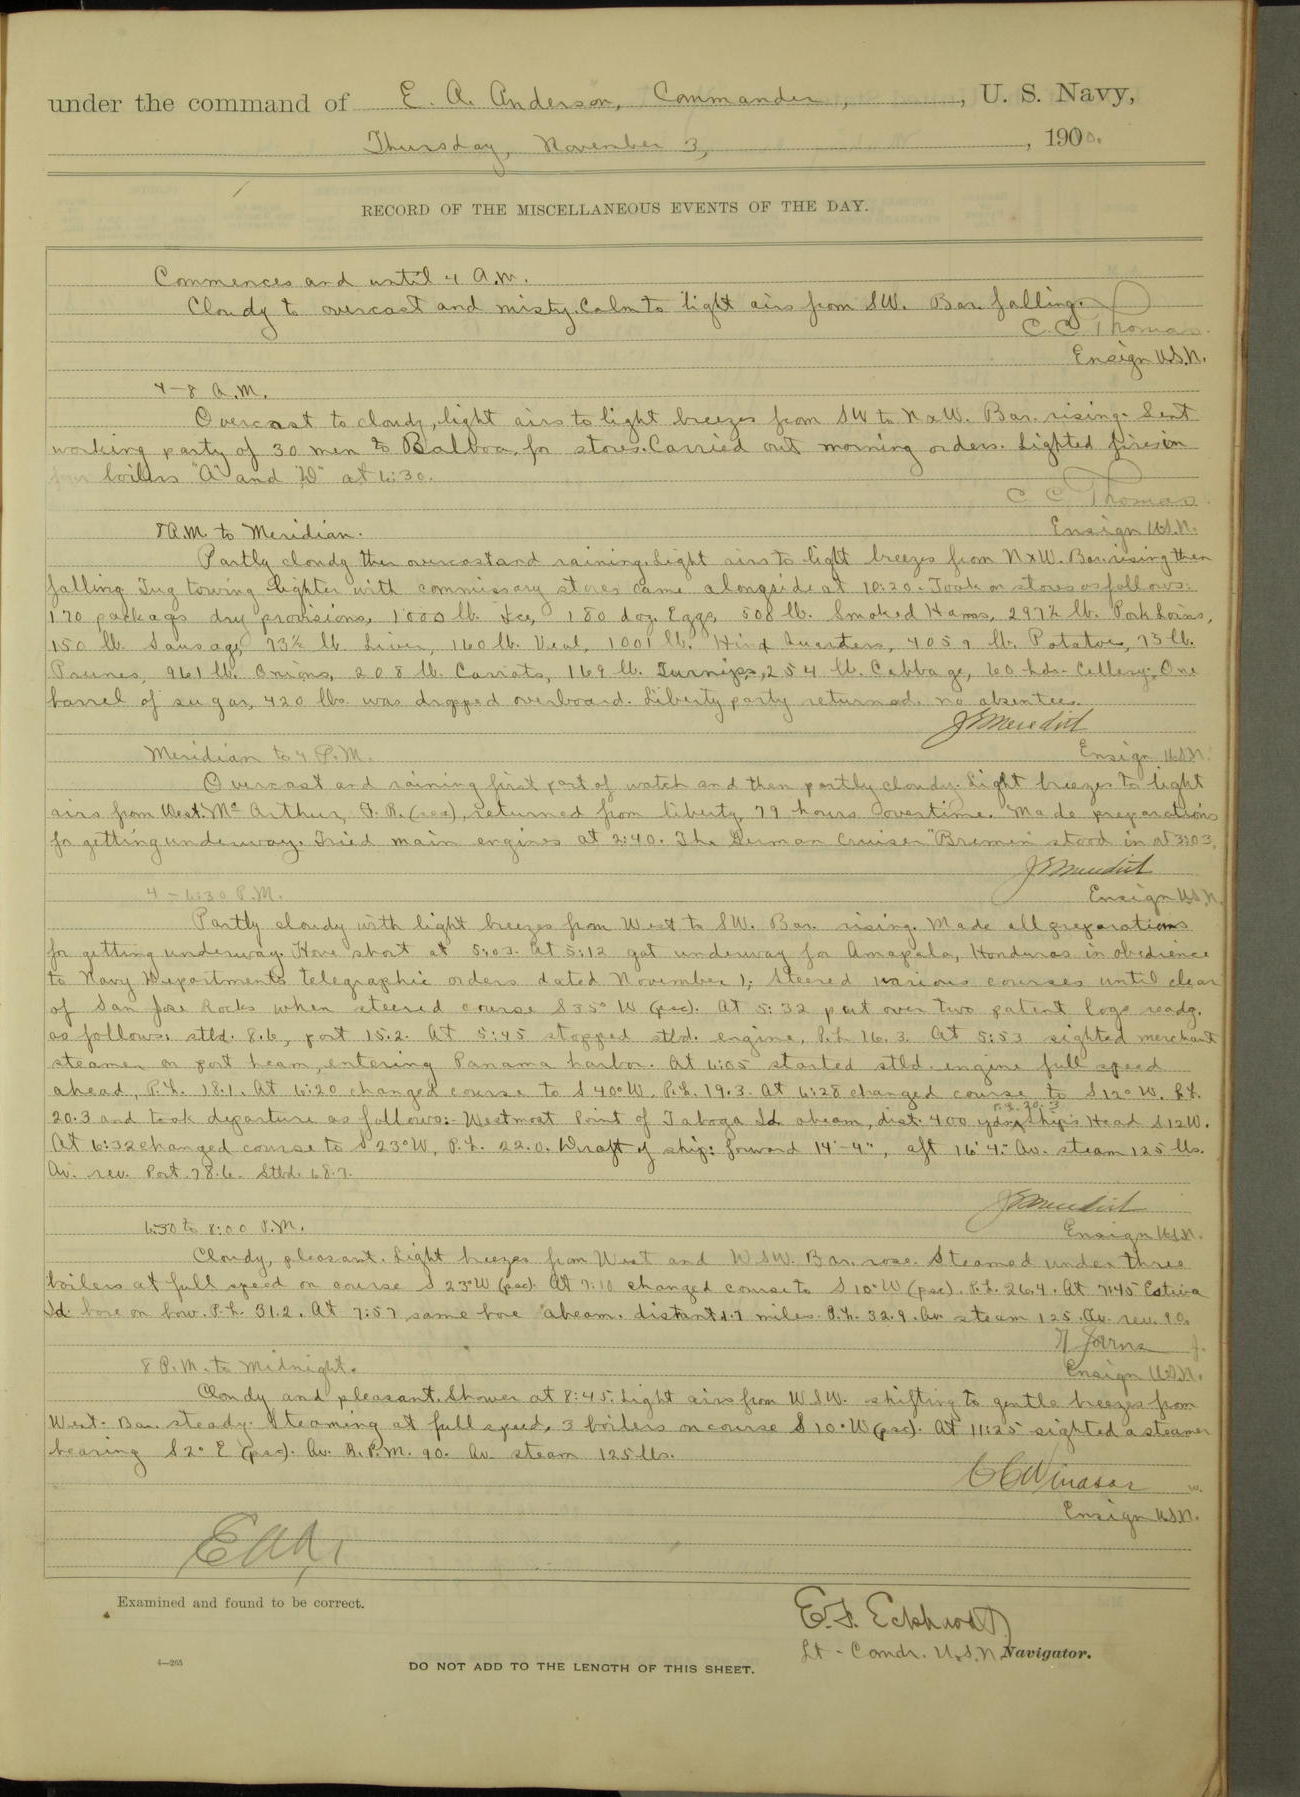 under the command of E. A. Anderson, Commander, U. S. Navy,
Thursday, November 3, 190
RECORD OF THE MISCELLANEOUS EVENTS OF THE DAY.
Commences and until 4 A.M.
Cloudy to overcast and misty. Calm to light airs from SW. Bar. falling.
C. C. Thomas
Ensign U.S.N.
4-8 A.M.
Overcast to cloudy, light airs to light breezes from SW to NxW. Bar. rising. Sent
working party of 30 men to Balboa, for stores. Carried out morning orders. Lighted fires in
boilers "A" and "D" at 6:30.
C C Thomas
Ensign U.S.N.
8 A.M. to Meridian.
Partly cloudy then overcast and raining. Light airs to light breezes from NxW. Bar. rising then
falling. Tug towing lighter with commissary stores came alongside at 10:20. Took on stores as follows:
170 packags dry provisions, 1000 lb. Ice, 180 doz. Eggs, 508 lb. Smoked Hams, 297½ lb. Pork Loins,
150 lb. Sausage, 73½ lb. Liver, 160 lb. Veal, 1001 lb. Hind Quarters, 4059 lb. Potatoes, 75 lb.
Prunes, 961 lb. Onions, 208 lb. Carrots, 169 lb. Turnips, 254 lb. Cabbage, 60 hds. Cellery. One
barrel of sugar, 420 lbs. was dropped overboard. Liberty party returned. no absentees.
J Meredith
Ensign U.S.N.
Meridian to 4 P.M.
Overcast and raining first part of watch and then partly cloudy. Light breezes to light
airs from West. McArthur, returned from liberty 79 hours overtime. Made preparations
for getting underway. Tried main engines at 2:40. The German Cruiser "Bremen" stood in at 3:03.
J Meredith
Ensign U.S.N.
4-6:30 P.M.
Partly cloudy with light breezes from West to SW. Bar. rising. Made all preparations
for getting underway. Hove short at 5:03. At 5:12 got underway for Amapala, Honduras in obedience
to Navy Departments telegraphic orders dated November 1; Steered various courses until clear
of San Jose Rocks when steered course S 35° W (psc). At 5:32 put over two patent logs readg.
as follows: stbd. 8.6, port 15.2. At 5:45 stopped stbd. engine, P.L. 16.3. At 5:53 sighted merchant
steamer on port beam, entering Panama harbor. At 6:05 started stbd. engine full speed
ahead, P.L. 18.1. At 6:20 changed course to S 40° W. P.L. 19.3. At 6:28 changed course to S 12° W. P.L.
20.3 and took departure as follows:- Westmost Point of Taboga Id. abeam, dist. 400 yds, P.L. 20.3 ship's Head S 12 W.
At 6:32 changed course to S 23° W, P.L. 22.0. Draft of ship: forward 14'-4", aft 16'4." Av. steam 125 lbs.
Av. rev. Port 78.6. Stbd. 68.7.
J Meredith
Ensign U.S.N.
6:30 to 8:00 P.M.
Cloudy, pleasant. Light breezes from West and WSW. Bar. rose. Steamed under three
boilers at full speed on course S 23° W (psc). At 7:10 changed course to S 10° W (psc). P.L. 26.4. At 7:45 Estiva
Id. bore on bow. P.L. 31.2. At 7:57 same bore abeam. distant 1.7 miles. P.L. 32.9. Av. steam 125. Av. rev. 90.
Ensign U.S.N.
8 P.M. to Midnight.
Cloudy and pleasant. Shower at 8:45. Light airs from WSW. shifting to gentle breezes from
West. Bar. steady. Steaming at full speed, 3 boilers on course S 10° W (psc). At 11:25 sighted a steamer
bearing S 2° E (psc). Av. R.P.M. 90. Av. steam 125 lbs.
C C Windsor
Ensign U.S.N.
E A A
Examined and found to be correct.
E. F. Eckhardt
Lt-Comdr. U.S.N. Navigator.
4—265
DO NOT ADD TO THE LENGTH OF THIS SHEET.